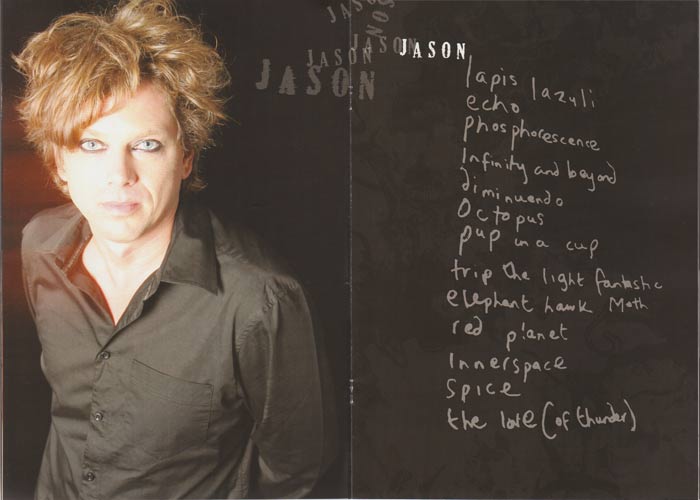 JASON
JASON
JASON
JASON
lapis lazuli
echo
phosphorescence
Infinity and beyond
diminuendo
Octopus
pup in a cup
trip the light fantastic
elephant hawk Moth
red p!anet
Innerspace
Spice
the (of thunder)